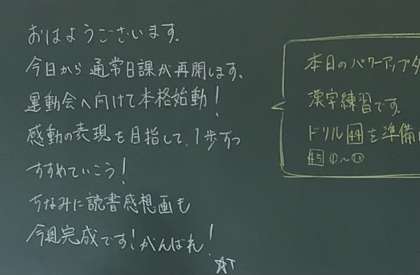 おはようございます。
今日から通常日課が再開します。
運動会へ向けて本格始動！
感動の表現を目指して、1歩ずつ
すすめていこう！
ちなみに読書感想画も
今週完成です！がんばれ！
本日のパワーアップタ
漢字練習です。
ドリル44を準備
45①〜